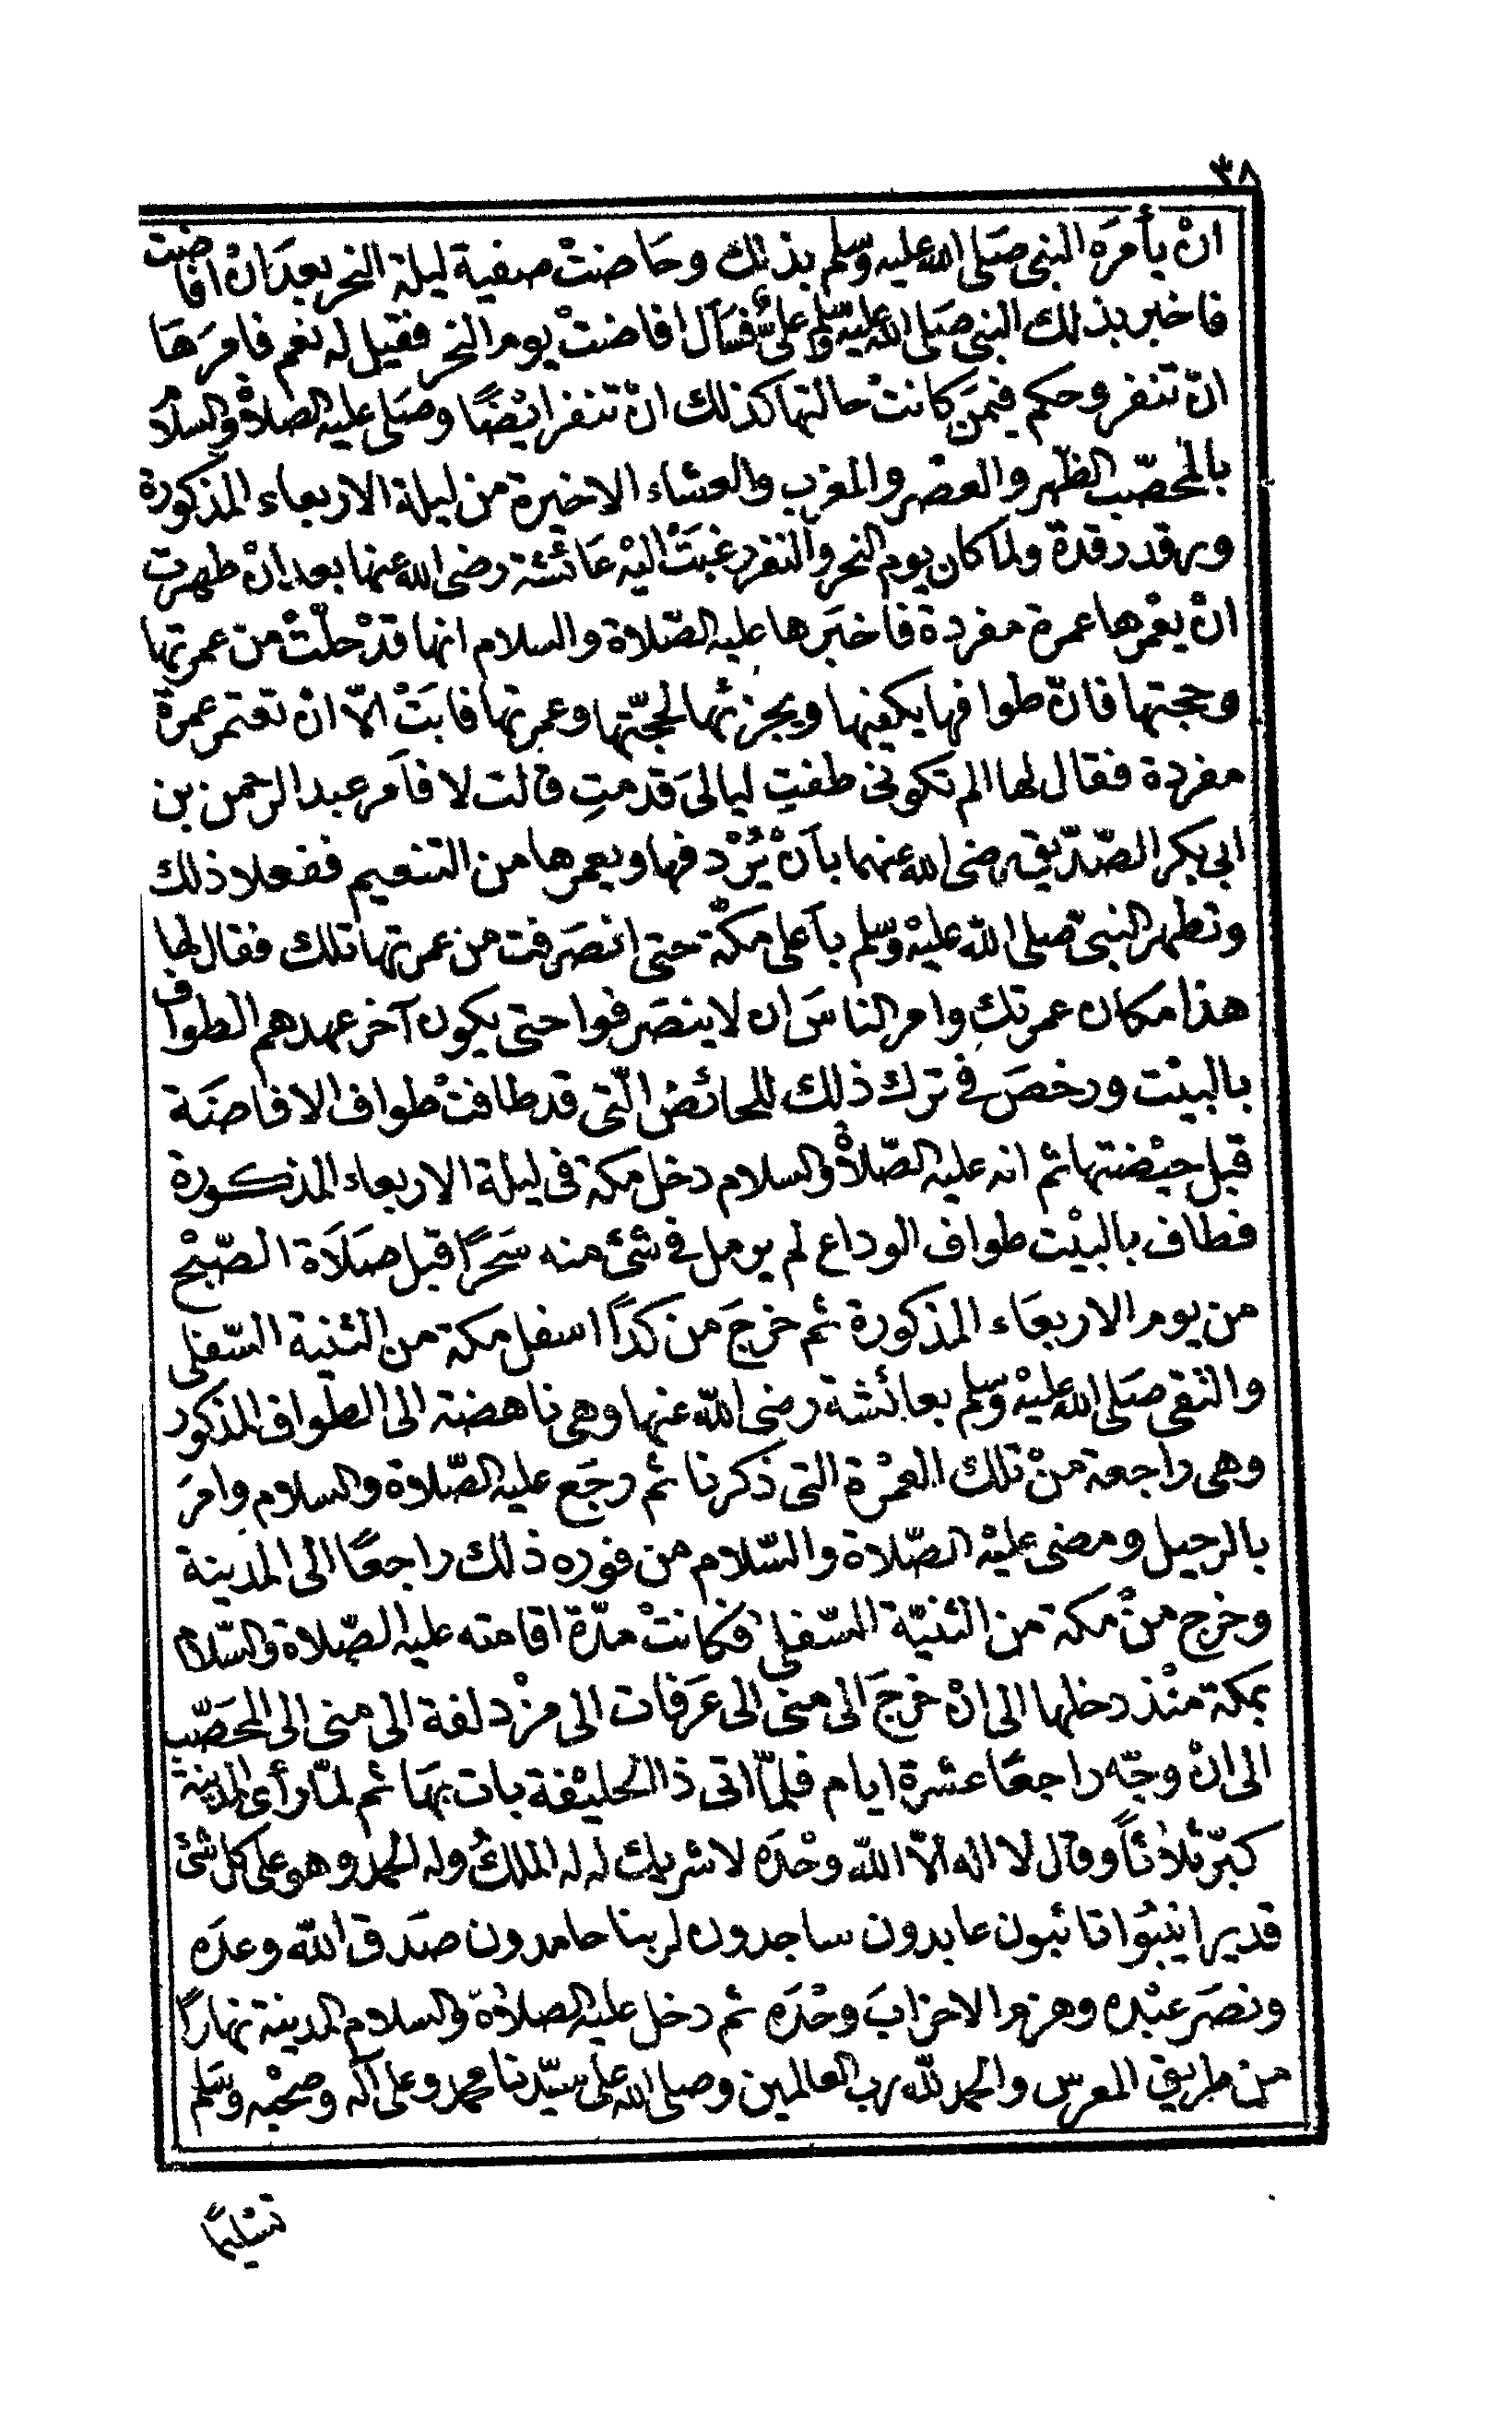 ٣٨
انْ يأمرَه النبى صَلى الله عليه وسلم بذلك وحَاضتْ صفية ليلة النحر بعدَانْ افاضت
فاخبر بذلك النبى صَلى الله عليه وسلم فسَأل افاضتْ يوم النحر فقيل له نعم فامرَهَا
انْ تنفر وحكم فيمَن كانتْ حالتها كذلك انْ تنفر ايْضًا وصَلى عليه الصلاة والسلام
بالمحصّب الظهر والعصْر والمغرب والعشاء الاخيرة من ليلة الاربعاء المذكورة
ورقد رقدة ولما كان يوم النحر والنفر رغبَتْ اليْه عَائشة رضى الله عنها بعد انْ طهرت
انْ يعْمرها عمرة مفردة فاخبَرها عليه الصّلاة والسلام انها قدْ حلّتْ من عمرتها
وحجتها فانّ طوافها يكفيها ويجزئها لحجّتها وعمرتها فابَتْ الاّ انْ تعتمر عمرة
مفردة فقال لها الم تكونى طفتِ ليالىَ قدمتِ قالت لا فاَمر عبد الرحمن بن
ابى بكر الصّدّيق رضى الله عنهما باَنْ يُرْدفها ويعمرها من التنعيم ففعلا ذلك
وتطهر النبى صلى الله عليْه وسلم باَعلى مكّة حتى انصَرفت من عمرتها تلك فقال لها
هذا مكان عمرتك وامر الناسَ ان لا ينصَرفوا حتى يكون آخر عهدهم الطواف
بالبيْت ورخصَ فى ترك ذلك للحائض الّتى قد طافتْ طواف الافاضَة
قبل حيْضتها ثم انه عليه الصّلاة والسلام دخل مكة فى ليلة الاربعاء المذكورة
فطاف بالبيْت طواف الوداع لم يرمل فى شئ منه سَحَرًا قبل صَلَاة الصّبْح
من يوم الاربعَاء المذكورة ثم خرجَ من كدَاً اسفل مكة من الثنية السّفلى
والتقى صَلى الله عليْه وسلم بعائشة رضى الله عنها وهى ناهضة الى الطواف المذكور
وهى راجعة منْ تلك العمْرة التى ذكرنا ثم رجَع عليه الصّلاة والسلام وامرَ
بالرحيل ومضى عليْه الصّلاة والسّلام من فوره ذلك راجعًا الى المدينة
وخرج منْ مكة من الثنيّة السّفلى فكانتْ مدّة اقامته عليه الصّلاة والسّلام
بمكة منْذ دخلها الى انْ خرجَ الى منى الى عَرَفات الى مزْدلفة الى منى الى المحَصّب
الى انْ وجّه راجعًا عشرة ايام فلمّا اتى ذا الحليْفة بات بهَا ثم لمّا رأى المدينة
كبّر ثلاثاً وقال لا اله الاّ الله وحْدَه لا شريك له له الملكُ وله الحمد وهو على كل شئ
قدير ايبُوا تائبون عابدون ساجدون لربنا حامدون صَدق الله وعدَه
ونصَر عبْده وهزم الاحزابَ وحْدَه ثم دخل عليه الصلاة والسلام المدينة نهارًا
من طريق المعرس والحمد لله رب العالمين وصلى الله على سيّدنا محمد وعلى آله وصحْبه وسلم
تسْليمًا